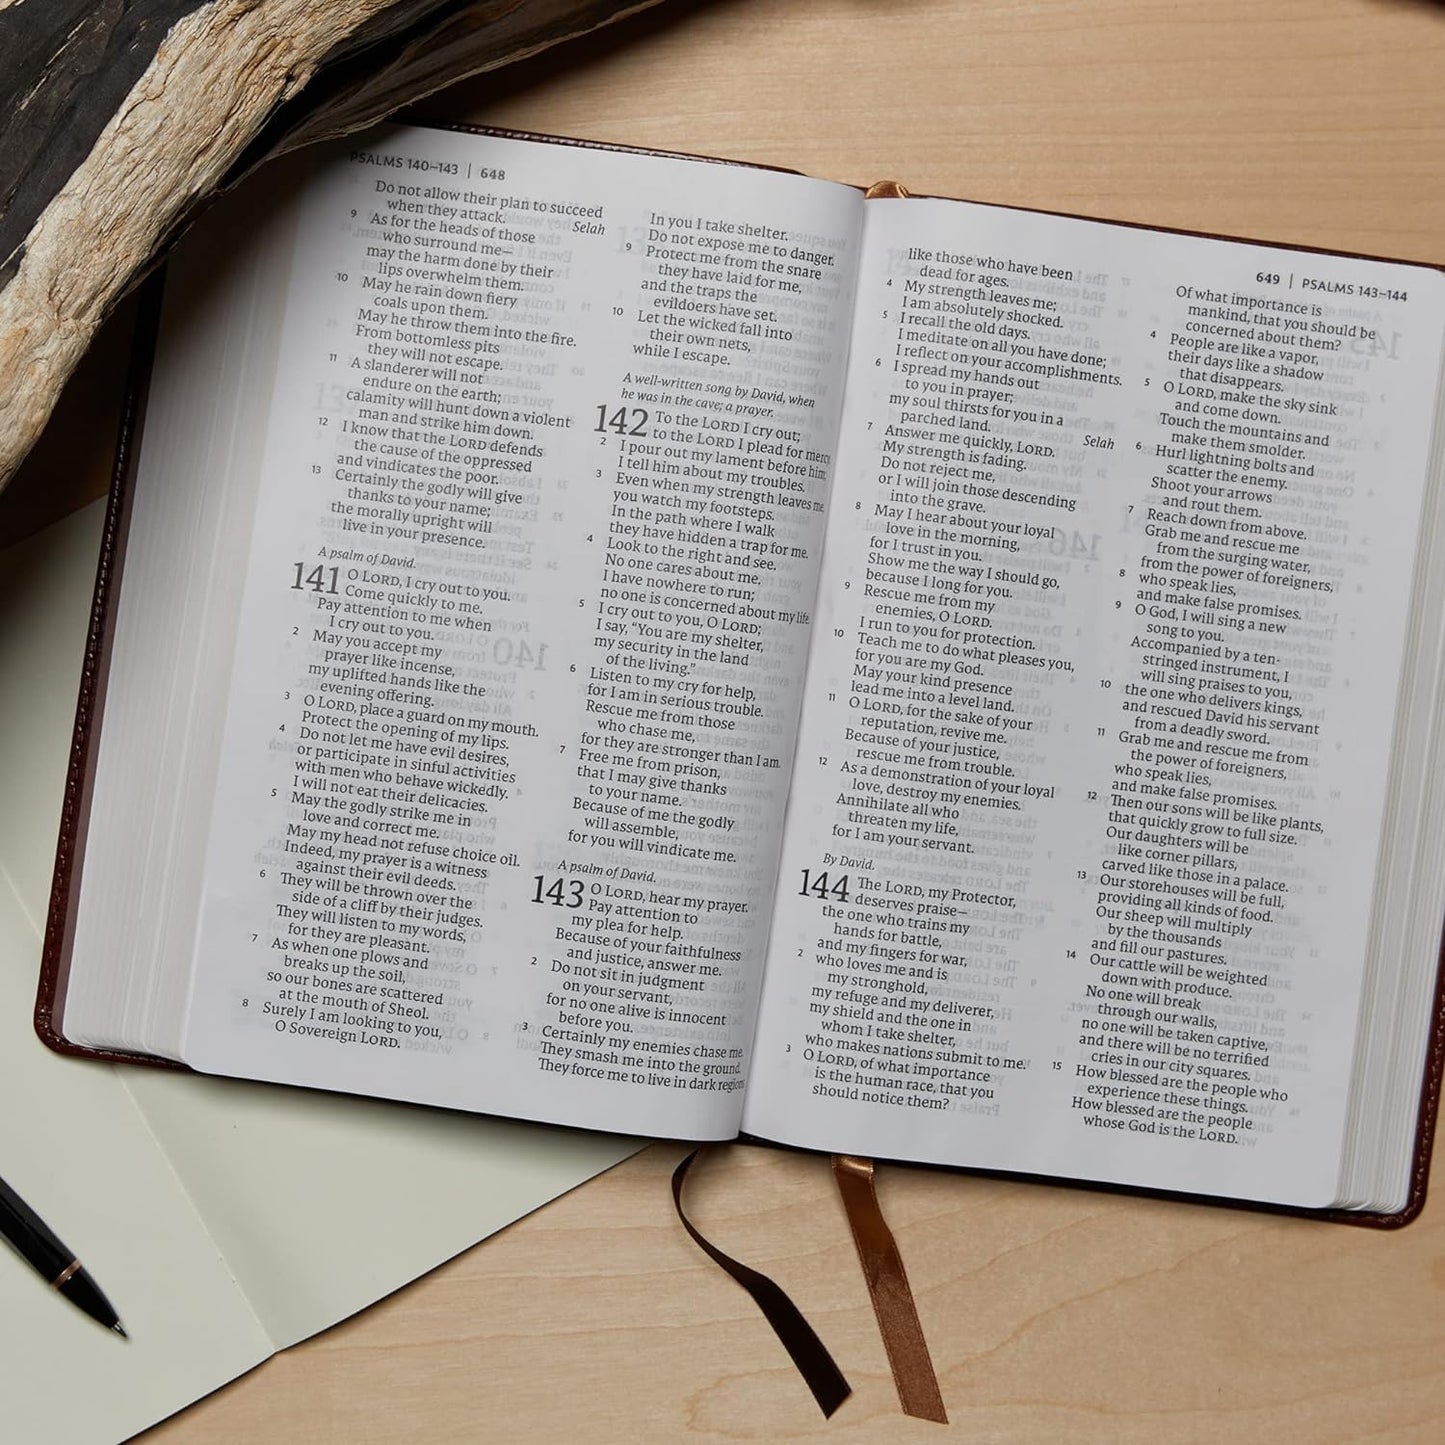 PSALMS 140–143 | 648
Do not allow their plan to succeed
when they attack. Selah
9 As for the heads of those
who surround me—
may the harm done by their
lips overwhelm them.
10 May he rain down fiery
coals upon them.
May he throw them into the fire.
From bottomless pits
they will not escape.
11 A slanderer will not
endure on the earth;
calamity will hunt down a violent
man and strike him down.
12 I know that the LORD defends
the cause of the oppressed
and vindicates the poor.
13 Certainly the godly will give
thanks to your name;
the morally upright will
live in your presence.
A psalm of David.
141 O LORD, I cry out to you.
Come quickly to me.
Pay attention to me when
I cry out to you.
2 May you accept my
prayer like incense,
my uplifted hands like the
evening offering.
3 O LORD, place a guard on my mouth.
Protect the opening of my lips.
4 Do not let me have evil desires,
or participate in sinful activities
with men who behave wickedly.
I will not eat their delicacies.
5 May the godly strike me in
love and correct me.
May my head not refuse choice oil.
Indeed, my prayer is a witness
against their evil deeds.
6 They will be thrown over the
side of a cliff by their judges.
They will listen to my words,
for they are pleasant.
7 As when one plows and
breaks up the soil,
so our bones are scattered
at the mouth of Sheol.
8 Surely I am looking to you,
O Sovereign LORD.
In you I take shelter.
Do not expose me to danger.
9 Protect me from the snare
they have laid for me,
and the traps the
evildoers have set.
10 Let the wicked fall into
their own nets,
while I escape.
A well-written song by David, when
he was in the cave; a prayer.
142 To the LORD I cry out;
to the LORD I plead for mercy.
2 I pour out my lament before him;
I tell him about my troubles.
3 Even when my strength leaves me,
you watch my footsteps.
In the path where I walk
they have hidden a trap for me.
4 Look to the right and see.
No one cares about me.
I have nowhere to run;
no one is concerned about my life.
5 I cry out to you, O LORD;
I say, “You are my shelter,
my security in the land
of the living.”
6 Listen to my cry for help,
for I am in serious trouble.
Rescue me from those
who chase me,
for they are stronger than I am.
7 Free me from prison,
that I may give thanks
to your name.
Because of me the godly
will assemble,
for you will vindicate me.
A psalm of David.
143 O LORD, hear my prayer.
Pay attention to
my plea for help.
Because of your faithfulness
and justice, answer me.
2 Do not sit in judgment
on your servant,
for no one alive is innocent
before you.
3 Certainly my enemies chase me.
They smash me into the ground.
They force me to live in dark regions,
649 | PSALMS 143–144
like those who have been
dead for ages.
4 My strength leaves me;
I am absolutely shocked.
5 I recall the old days.
I meditate on all you have done;
I reflect on your accomplishments.
6 I spread my hands out
to you in prayer;
my soul thirsts for you in a
parched land. Selah
7 Answer me quickly, LORD.
My strength is fading.
Do not reject me,
or I will join those descending
into the grave.
8 May I hear about your loyal
love in the morning,
for I trust in you.
Show me the way I should go,
because I long for you.
9 Rescue me from my
enemies, O LORD.
I run to you for protection.
10 Teach me to do what pleases you,
for you are my God.
May your kind presence
lead me into a level land.
11 O LORD, for the sake of your
reputation, revive me.
Because of your justice,
rescue me from trouble.
12 As a demonstration of your loyal
love, destroy my enemies.
Annihilate all who
threaten my life,
for I am your servant.
By David.
144 The LORD, my Protector,
deserves praise—
the one who trains my
hands for battle,
and my fingers for war,
2 who loves me and is
my stronghold,
my refuge and my deliverer,
my shield and the one in
whom I take shelter,
who makes nations submit to me.
3 O LORD, of what importance
is the human race, that you
should notice them?
Of what importance is
mankind, that you should be
concerned about them?
4 People are like a vapor,
their days like a shadow
that disappears.
5 O LORD, make the sky sink
and come down.
Touch the mountains and
make them smolder.
6 Hurl lightning bolts and
scatter the enemy.
Shoot your arrows
and rout them.
7 Reach down from above.
Grab me and rescue me
from the surging water,
from the power of foreigners,
8 who speak lies,
and make false promises.
9 O God, I will sing a new
song to you.
Accompanied by a ten-
stringed instrument, I
will sing praises to you,
10 the one who delivers kings,
and rescued David his servant
from a deadly sword.
11 Grab me and rescue me from
the power of foreigners,
who speak lies,
and make false promises.
12 Then our sons will be like plants,
that quickly grow to full size.
Our daughters will be
like corner pillars,
carved like those in a palace.
13 Our storehouses will be full,
providing all kinds of food.
Our sheep will multiply
by the thousands
and fill our pastures.
14 Our cattle will be weighted
down with produce.
No one will break
through our walls,
no one will be taken captive,
and there will be no terrified
cries in our city squares.
15 How blessed are the people who
experience these things.
How blessed are the people
whose God is the LORD.